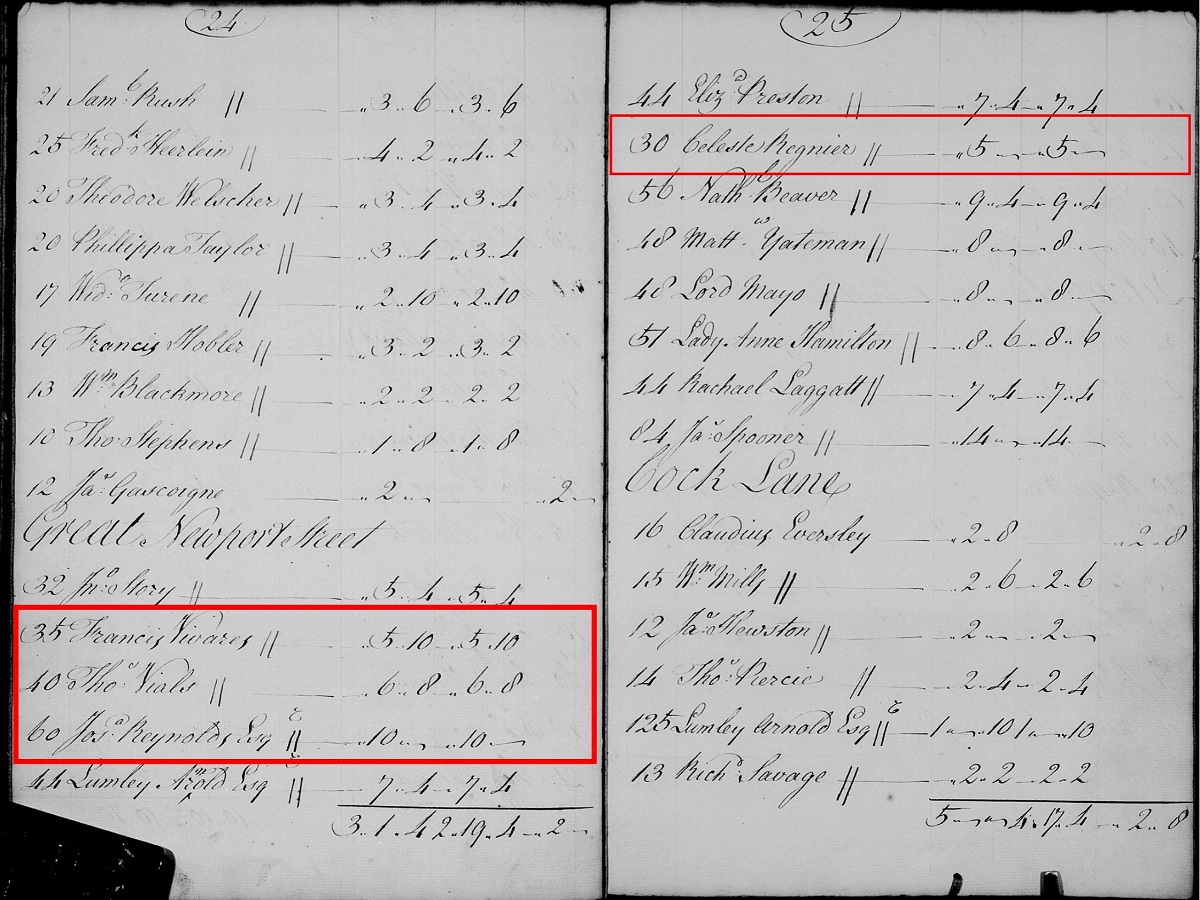 24
21 Sam.l Rush // „3„6 „3„6
25 Fred.k Heerlein // „4„2 „4„2
20 Theodore Welscher // „3„4 „3„4
20 Phillippa Taylor // „3„4 „3„4
17 Wid.o Turene // „2„10 „2„10
19 Francis Hobler // „3„2 „3„2
13 W.m Blackmore // „2„2 „2„2
10 Tho.s Stephens // „1„8 „1„8
12 Ja.s Gascoigne „2„— „2„—
Great Newport Street
32 Jn.o Story // „5„4 „5„4
35 Francis Vivares // „5„10 „5„10
40 Tho.s Vials // „6„8 „6„8
60 Jos.a Reynolds Esq // „10„— „10„—
44 Lumley Arnold Esq // „7„4 „7„4
3„1„4 2„19„4 „2„—
25
44 Eliz.a Preston // „7„4 „7„4
30 Celeste Regnier // „5„— „5„—
56 Nath.l Beaver // „9„4 „9„4
48 Matt.w Yateman // „8„— „8„—
48 Lord Mayo // „8„— „8„—
51 Lady Anne Hamilton // „8„6 „8„6
44 Rachael Laggatt // „7„4 „7„4
84 Ja.s Spooner // „14„— „14„—
Cock Lane
16 Claudius Eversley „2„8 „2„8
15 W.m Mills // „2„6 „2„6
12 Ja.s Hewston // „2„— „2„—
14 Tho.s Piercie // „2„4 „2„4
125 Lumley Arnold Esq // 1„—„10 1„—„10
13 Rich.d Savage // „2„2 „2„2
5„—„— 4„17„4 „2„8